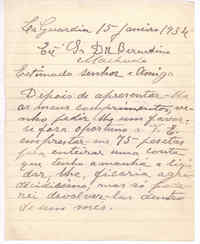 La Guardia 15 Janeiro 1934
Exº Sr. Dr. Bernardino
Machado
Estimado senhor e amigo
Depois de apresentar-lhe
os meus cumprimentos, ve-
nho pedir-lhe um favor-
se fora oportuno a V. Ex
emprestar-me 75 pesetas
para inteirar uma conta
que tenho amanhã a liqui-
dar, lhe, ficaria agra-
decidissimo, mas so pode-
rei devolver-las dentro
de um mes.